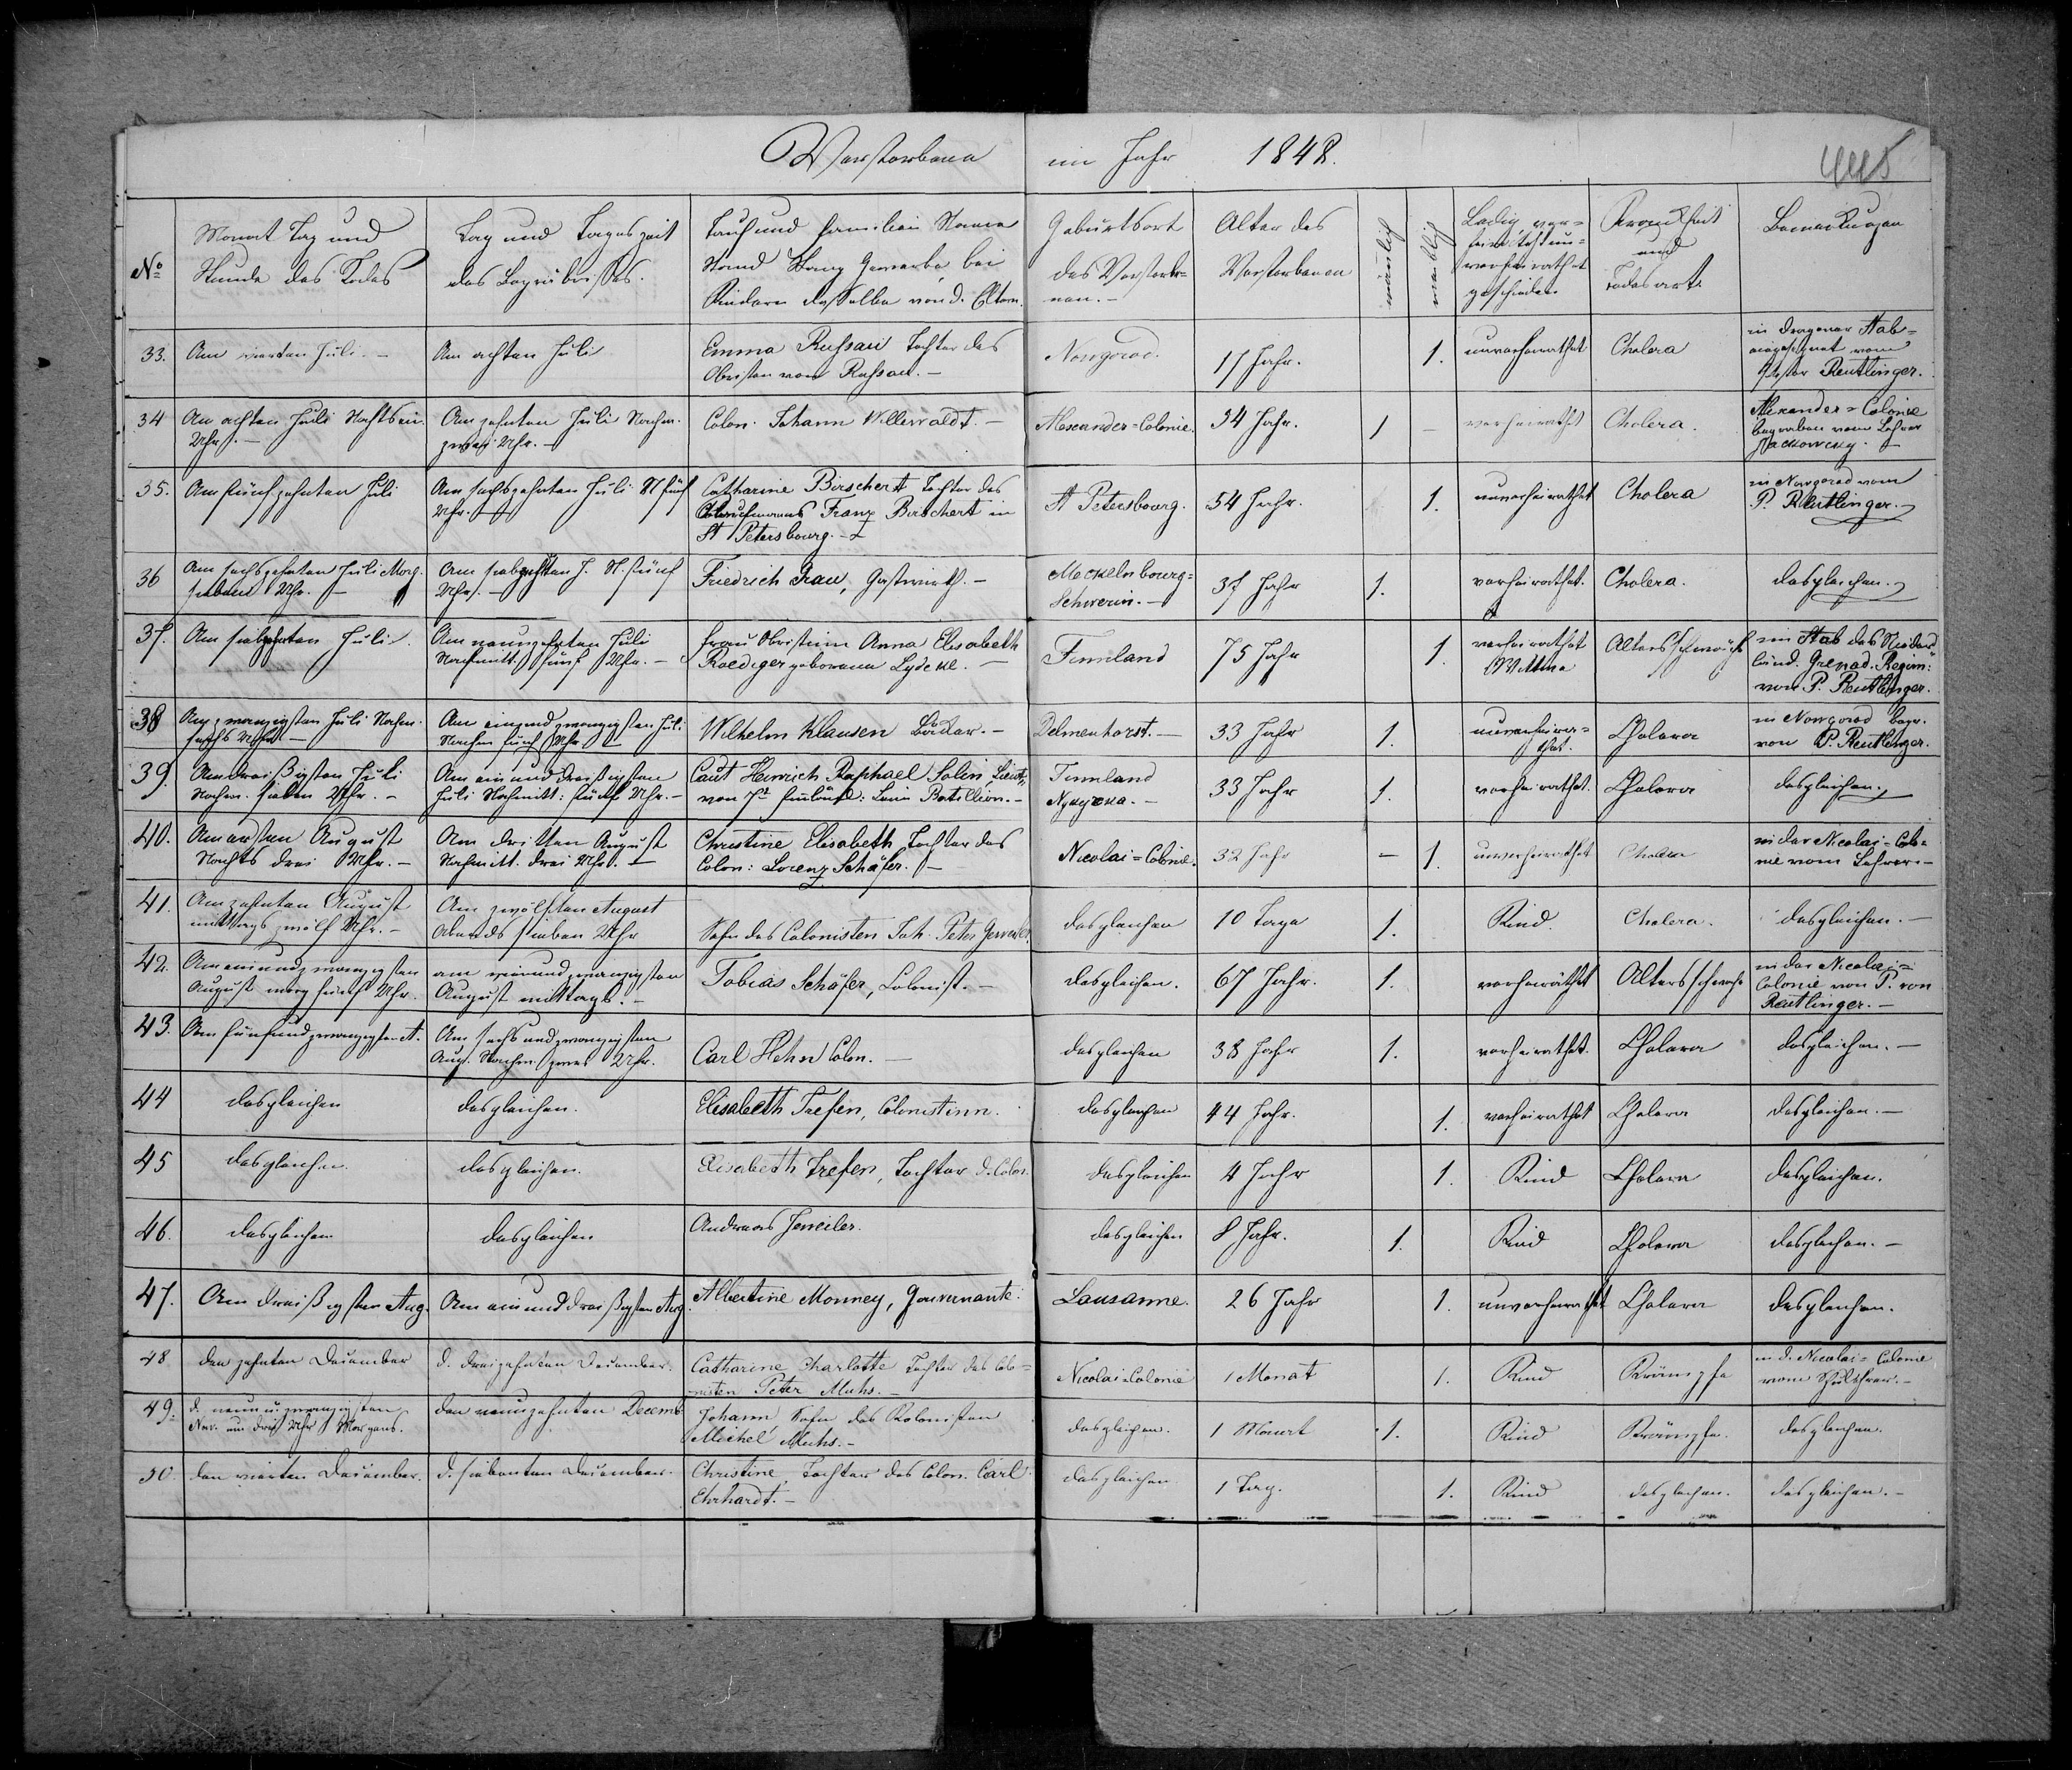 Verstorbene im Jahr 1848.
445
No
Monat Tag und
Stunde des Todes
Tag und Tageszeit
des Begräbnisses.
Tauf und Familien Name
Stand Rang Gewerbe bei
Kindern dasselbe von d. Eltern.
Geburtsort
des Verstorbe=
nen.-
Alter des
Verstorbenen
männlich
weiblich
Ledig ver=
heirathet un=
verheirathet
geschieden
Krankheit
und
Todesart.
Bemerkungen
33.
Am vierten Juli. -
Am achten Juli
Emma Russau Tochter des
Obristen von Russau. -
Nowgorod.
17 Jahr.
1.
unverheirathet
Cholera
im Dragoner Stab=
eingesegnet vom
Pastor Reutlinger.
34
Am achten Juli Nachts ein
Uhr. -
Am zehnten Juli Nachm.
zwei Uhr. -
Colon. Johann Willewaldt. -
Alexander=Colonie.
54 Jahr.
1
-
verheirathet
Cholera.
Alexander=Colonie
begraben vom Lehrer
35.
Am fünfzehnten Juli
Am sechszehnten Juli N fünf
Uhr. -
Catharine Birschert Tochter des
Franz Birschert in
St Petersbourg. -
St Petersbourg.
54 Jahr.
1.
unverheirathet
Cholera
in Nowgorod vom
P. Reutlinger. -
36
Am sechszehnten Juli Morg.
sieben Uhr. -
Am siebzehnten J. N. fünf
Uhr. -
Friedrich Frau, Gastwirth. -
Meckelnbourg=
Schwerin. -
37 Jahr
1.
verheirathet.
Cholera.
desgleichen.
37.
Am siebzehnten Juli.
Am neunzehnten Juli
Nachmitt. fünf Uhr. -
Frau Obristinn Anna Elisabeth
Roediger geborene Lydecke. -
Finnland
75 Jahr
1.
verheirathet
Wittwe
Altersschwäche
im Stab des Nieder
länd. Grenad. Regim:
von P. Reutlinger.
38
Am zwanzigsten Juli Nachm.
sechs Uhr. -
Am einundzwanzigsten Juli
Nachm fünf Uhr. -
Wilhelm Klausen Bäcker. -
Delmenhorst. -
33 Jahr
1.
unverheira=
thet.
Cholera
in Nowgorod begr.
von P. Reutlinger.
39.
Am dreißigsten Juli
Nachm. sieben Uhr. -
Am ein und dreißigsten
Juli Nachmitt: fünf Uhr. -
Heinrich Raphael Solin Lieut:
Finnland
33 Jahr
1.
verheirathet.
Cholera
desgleichen.
40.
Am ersten August
Nachts drei Uhr. -
Am dritten August
Nachmitt. drei Uhr. -
Christine Elisabeth Tochter des
Colon: Lorenz Schäfer. -
Nicolai=Colonie.
32 Jahr
-
1.
unverheirathet
Cholera
in der Nicolai=Colo=
nie vom Lehrer. -
41.
Am zehnten August
mittags zwölf Uhr. -
Am zwölften August
Abends sieben Uhr
Sohn des Colonisten Joh. Peter
desgleichen
10 Tage
1.
Kind.
Cholera.
desgleichen. -
42.
Am einundzwanzigsten
August morg fünf Uhr.
am vierundzwanzigsten
August mittags. -
Tobias Schäfer, Colonist. -
desgleichen.
67 Jahr.
1.
verheiräthet
Altersschwäche
in der Nicolai=
Colonie von P. von
Reutlinger. -
43.
Am fünfundzwanzigsten A.
Am sechsundzwanzigsten
Aug. Nachm. zwei Uhr.
Carl Hehn Colon. -
desgleichen
38 Jahr
1.
verheirathet.
Cholera
desgleichen. -
44
desgleichen
desgleichen.
Elisabeth Trefen, Colonistinn.
desgleichen
44 Jahr.
1.
verheirathet
Cholera
desgleichen. -
45
desgleichen.
desgleichen.
Elisabeth Trefen, Tochter d. Colon.
desgleichen
4 Jahr
1.
Kind
Cholera
desgleichen.
46.
desgleichen
desgleichen
Andreas Jerweiler.
desgleichen
8 Jahr.
1.
Kind
Cholera
desgleichen. -
47.
Am dreißigsten Aug.
Am einunddreißigsten Aug.
Albertine Monney, Gouvernante.
Lausanne.
26 Jahr
1.
unverheirathet
Cholera
desgleichen.
48
den zehnten December
d. dreizehnten December.
Catharine Charlotte Tochter des Colo=
nisten Peter Muhs. -
Nicolai=Colonie
1 Monat
1.
Kind
Krämpfe
in d. Nicolai=Colonie
vom Schullehrer. -
49.
d. neun u. zwanzigsten
Nov. um drei Uhr Morgens.
den neunzehnten Decemb.
Johann Sohn des Kolonisten
Michel Muhs. -
desgleichen.
1 Monat
1.
Kind
Krämpfe.
desgleichen.
50.
den vierten December.
d. siebenten December.
Christine, Tochter des Colon. Carl
Ehrhardt. -
desgleichen
1 Tag.
1.
Kind
desgleichen.
desgleichen. -